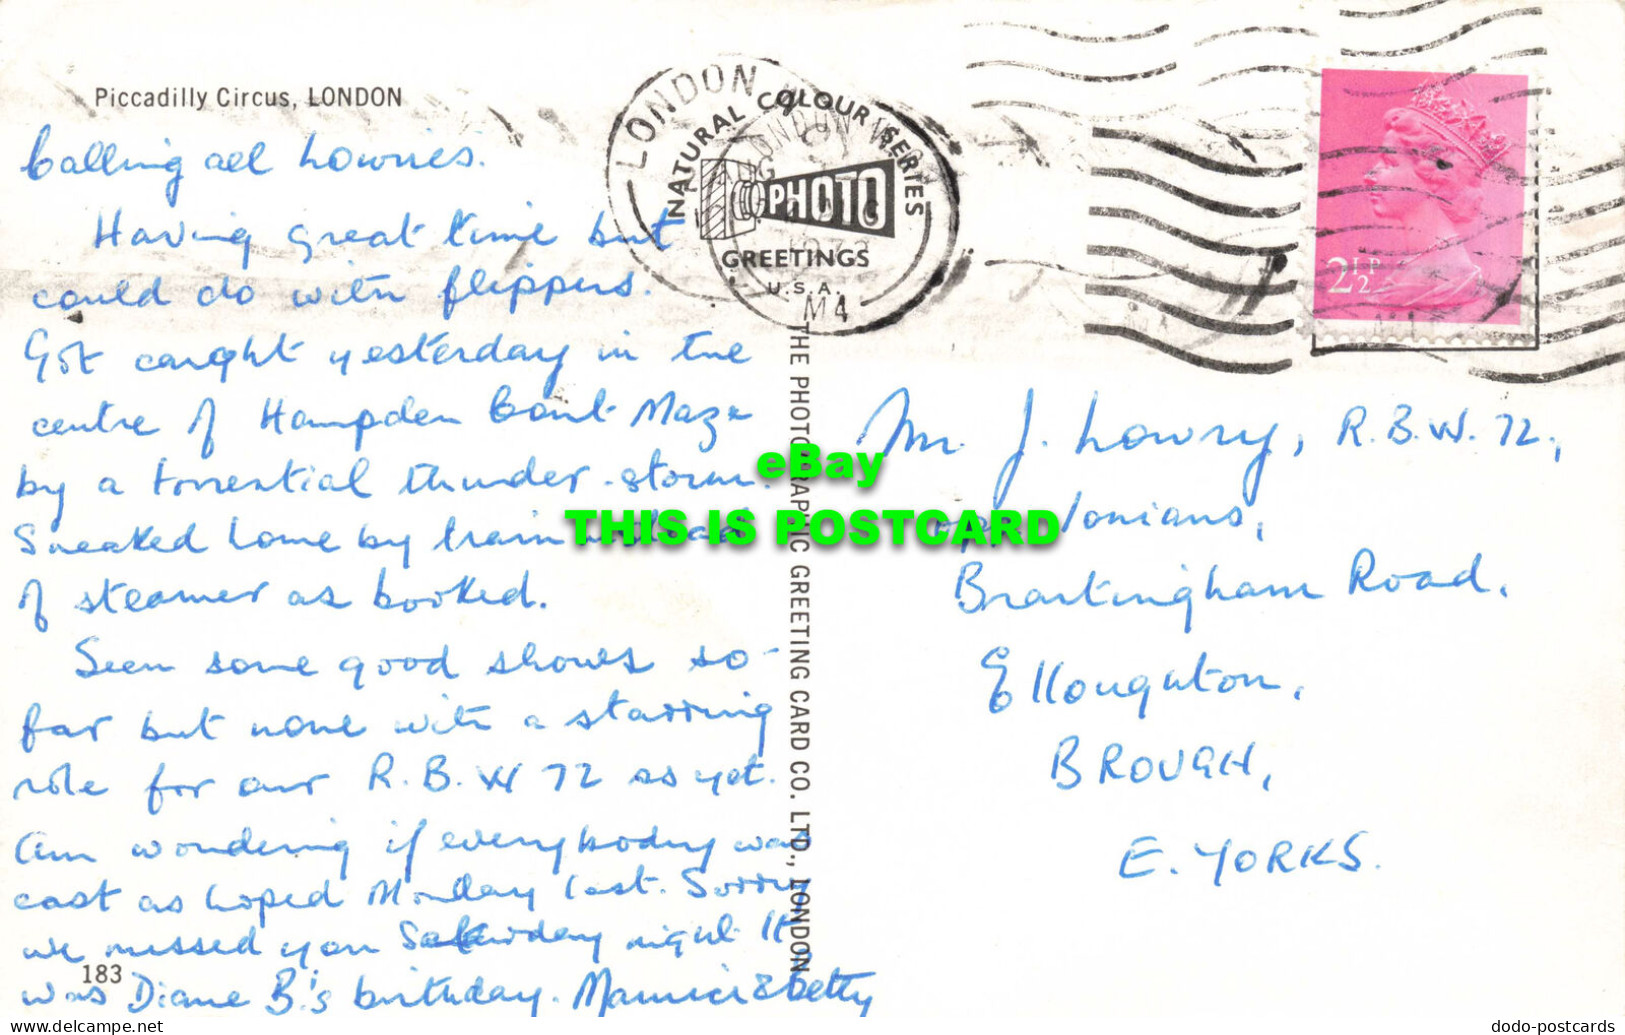 Piccadilly Circus, LONDON
Calling all Lowries.
Having great time but
could do with flippers.
Got caught yesterday in the
centre of Hampden Court Maze
by a torrential thunder-storm.
Sneaked home by train instead
of steamer as booked.
Seen some good shows so-
far but none with a starring
role for our R.B.W 72 as yet.
Am wondering if everybody was
cast as hoped Monday last. Sorry
we missed you Saturday night It
was Diane B.'s birthday. Maurice & Betty
183
LONDON
NATURAL COLOUR SERIES
PHOTO
GREETINGS
U.S.A.
M4
THE PHOTOGRAPHIC GREETING CARD CO. LTD., LONDON
2½P
Mr. J. Lowry, R.B.W. 72,
Brantingham Road.
Elloughton,
BROUGH,
E. YORKS.
eBay
THIS IS POSTCARD
dodo-postcards